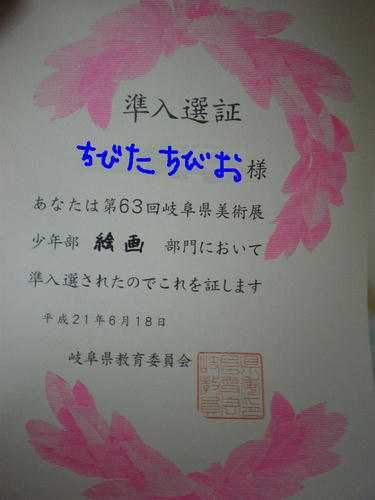 準入選証
ちびたちびお様
あなたは第63回岐阜県美術展
少年部 絵画 部門において
準入選されたのでこれを証します
平成21年6月18日
岐阜県教育委員会